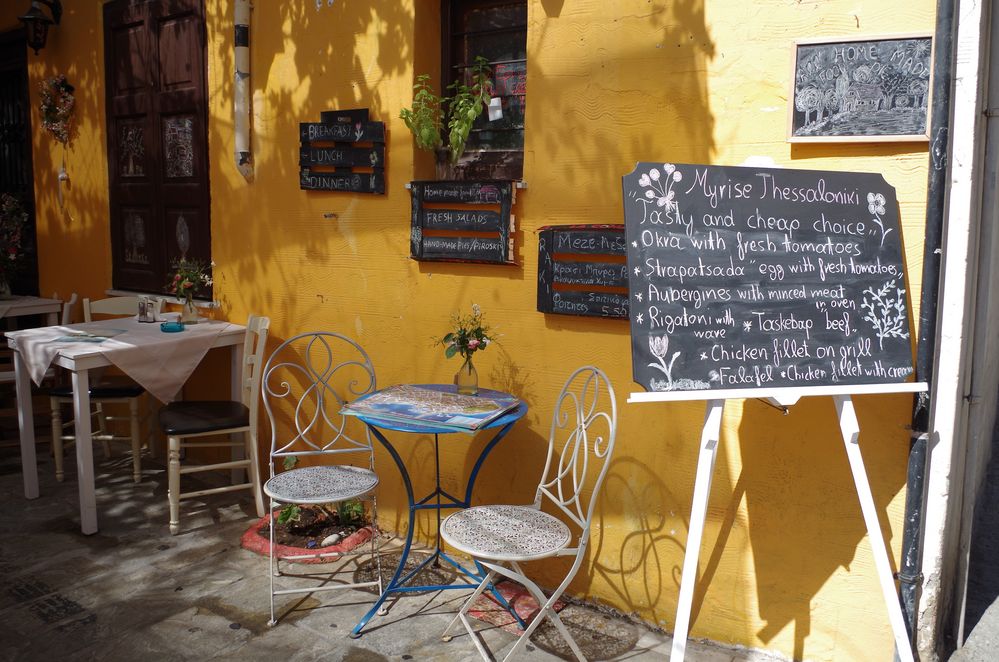 BREAKFAST
LUNCH
DINNER
Home made food
FRESH SALADS
HAND-MADE PIES/PIROSKI
RAKI
MEZE-ΜΕΖΕ
Κρασί Μπύρες
5.50
HOME MADE
FOOD
Myrise Thessaloniki
"Tasty and cheap choice"
* Okra with fresh tomatoes
* Strapatsada "egg with fresh tomatoes"
* Aubergines with minced meat
in oven
* Rigatoni with * Taskebap "beef"
wave
* Chicken fillet on grill
* Falafel * Chicken fillet with cream